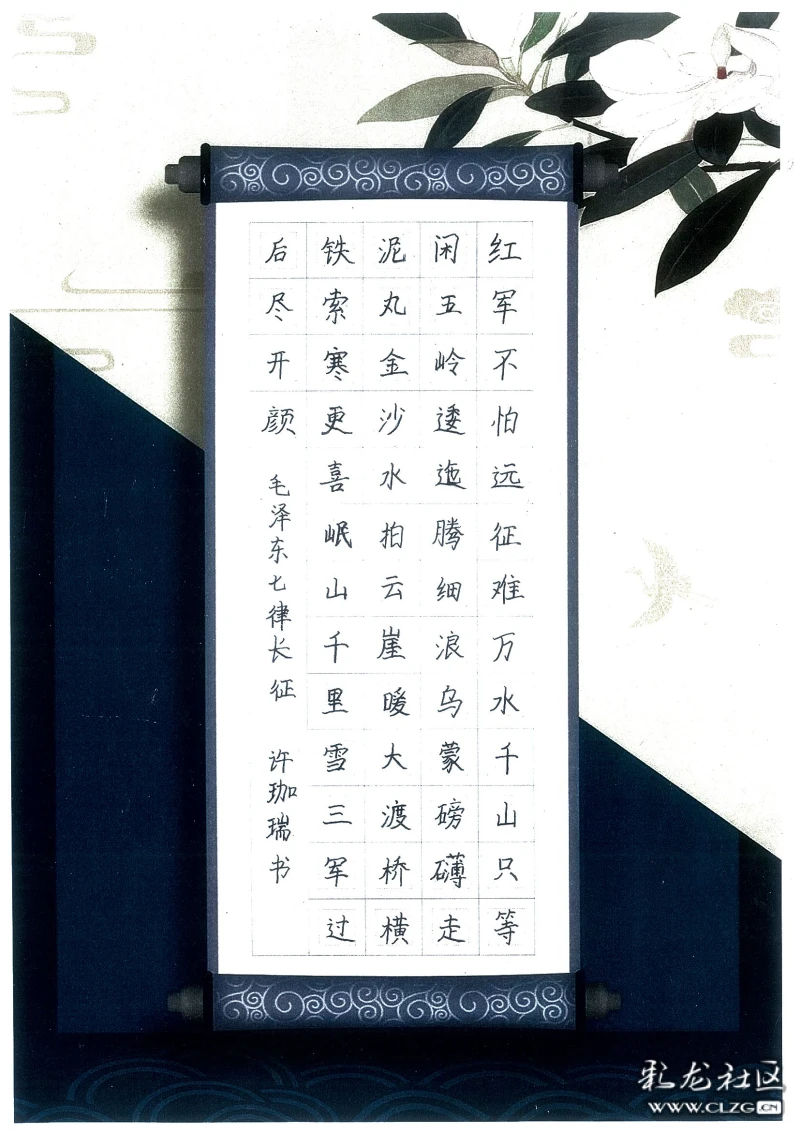 红军不怕远征难万水千山只等
闲五岭逶迤腾细浪乌蒙磅礴走
泥丸金沙水拍云崖暖大渡桥横
铁索寒更喜岷山千里雪三军过
后尽开颜
毛泽东七律长征 许珈瑞书
彩龙社区
WWW.CLZG.CN